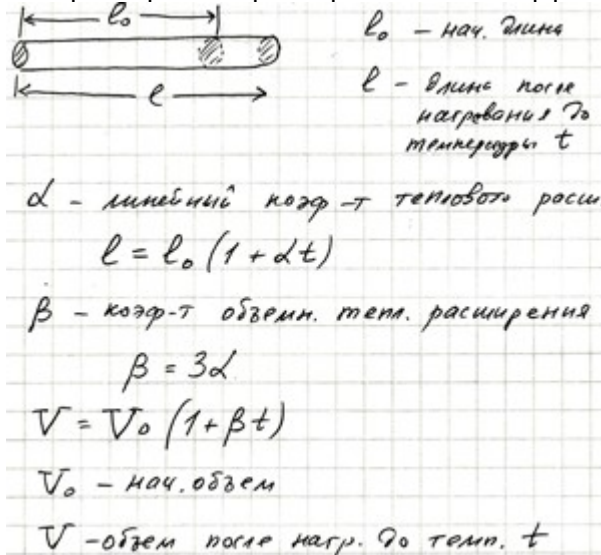 l₀
l₀ – нач. длина
l
l – длина после
нагревания до
температуры t
α – линейный коэф-т теплового расш
l = l₀ (1 + αt)
β – коэф-т объемн. тепл. расширения
β = 3α
V = V₀ (1 + βt)
V₀ – нач. объем
V – объем после нагр. до темп. t